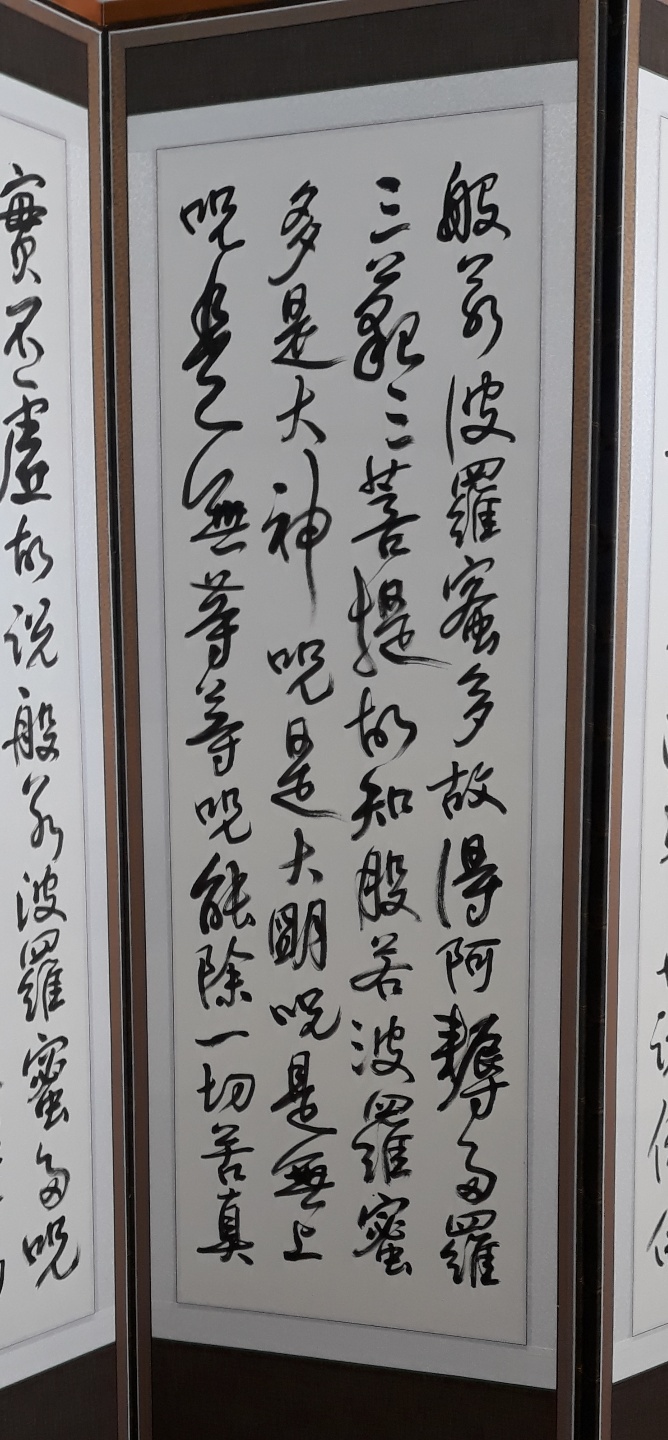 般若波羅蜜多故得阿耨多羅
三藐三菩提故知般若波羅蜜
多是大神呪是大朙呪是無上
呪是無等等呪能除一切苦真
實不虛故說般若波羅蜜多呪